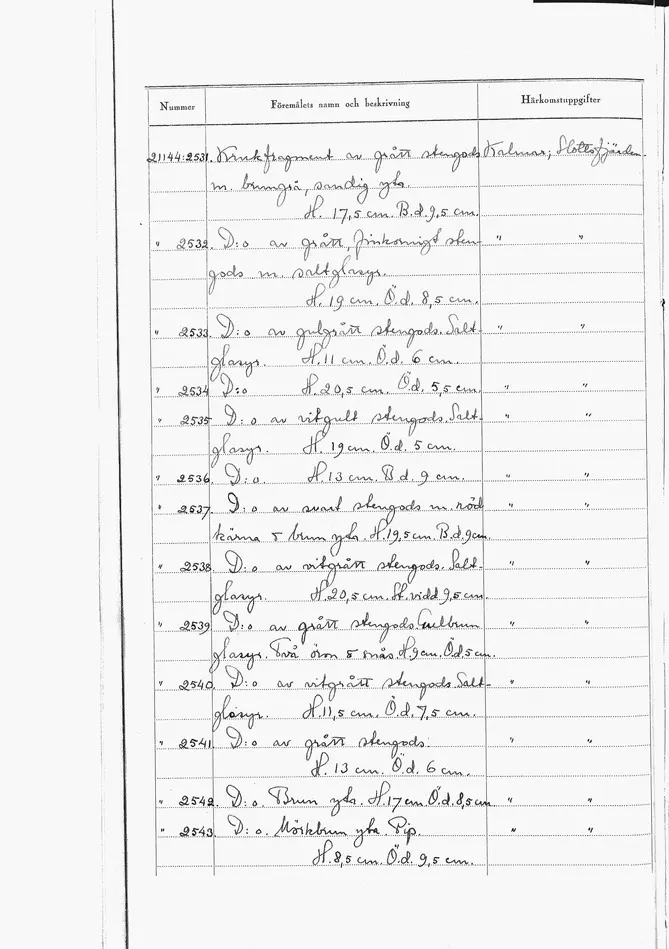 Nummer Föremålets namn och beskrivning Härkomstuppgifter
21144:2531. Krukfragment av grått stengods Kalmar; Slottsfjärden.
m. brungrå, sandig yta.
H. 17,5 cm. B.d. 9,5 cm.
" 2532. D:o av grått, finkornigt sten- " "
gods m. saltglasyr.
H. 19 cm. Ö.d. 8,5 cm.
" 2533. D:o av gulgrått stengods. Salt- " "
glasyr. H. 11 cm. Ö.d. 6 cm.
" 2534. D:o H. 20,5 cm. Öd. 5,5 cm. " "
" 2535. D:o av vitgult stengods. Salt- " "
glasyr. H. 19 cm. Ö.d. 5 cm.
" 2536. D:o. H. 13 cm. B.d. 9 cm. " "
" 2537. D:o av svart stengods m. röd " "
kärna o brun yta. H. 19,5 cm. B.d. 9 cm.
" 2538. D:o av vitgrått stengods. Salt- " "
glasyr. H. 20,5 cm. St. vidd 9,5 cm.
" 2539. D:o av grått stengods. Gulbrun " "
glasyr. Två öron o snås. H. 9 cm. Ö.d. 5 cm.
" 2540. D:o av vitgrått stengods. Salt- " "
glasyr. H. 11,5 cm. Ö.d. 7,5 cm.
" 2541. D:o av grått stengods. " "
H. 13 cm. Ö.d. 6 cm.
" 2542. D:o. Brun yta. H. 17 cm. Ö.d. 8,5 cm. " "
" 2543. D:o. Mörkbrun yta. Pip. " "
H. 8,5 cm. Ö.d. 9,5 cm.